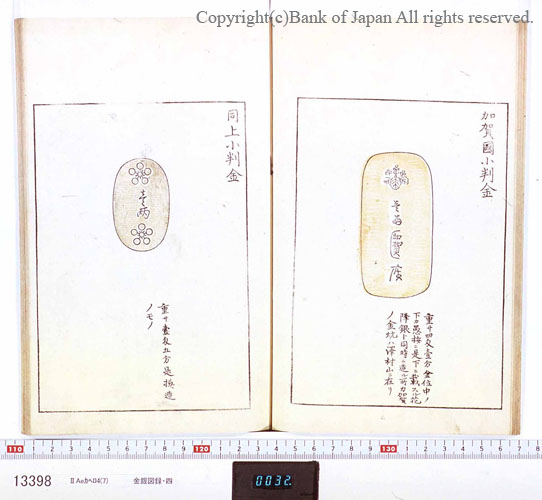 Copyright(c)Bank of Japan All rights reserved.
加賀國小判金
壹両
重サ四匁壹分金位中ノ
下カ愚按ニ是下ニ載スル花
降銀ト同時ニ造ル所カ加賀
ノ金坑ハ澤村山ニ在リ
同上小判金
壹両
重サ壹匁五分是換造
ノモノ
110
120
130
13398
Ⅱ AeカヘD4(7)
金銀図録・四
0032.